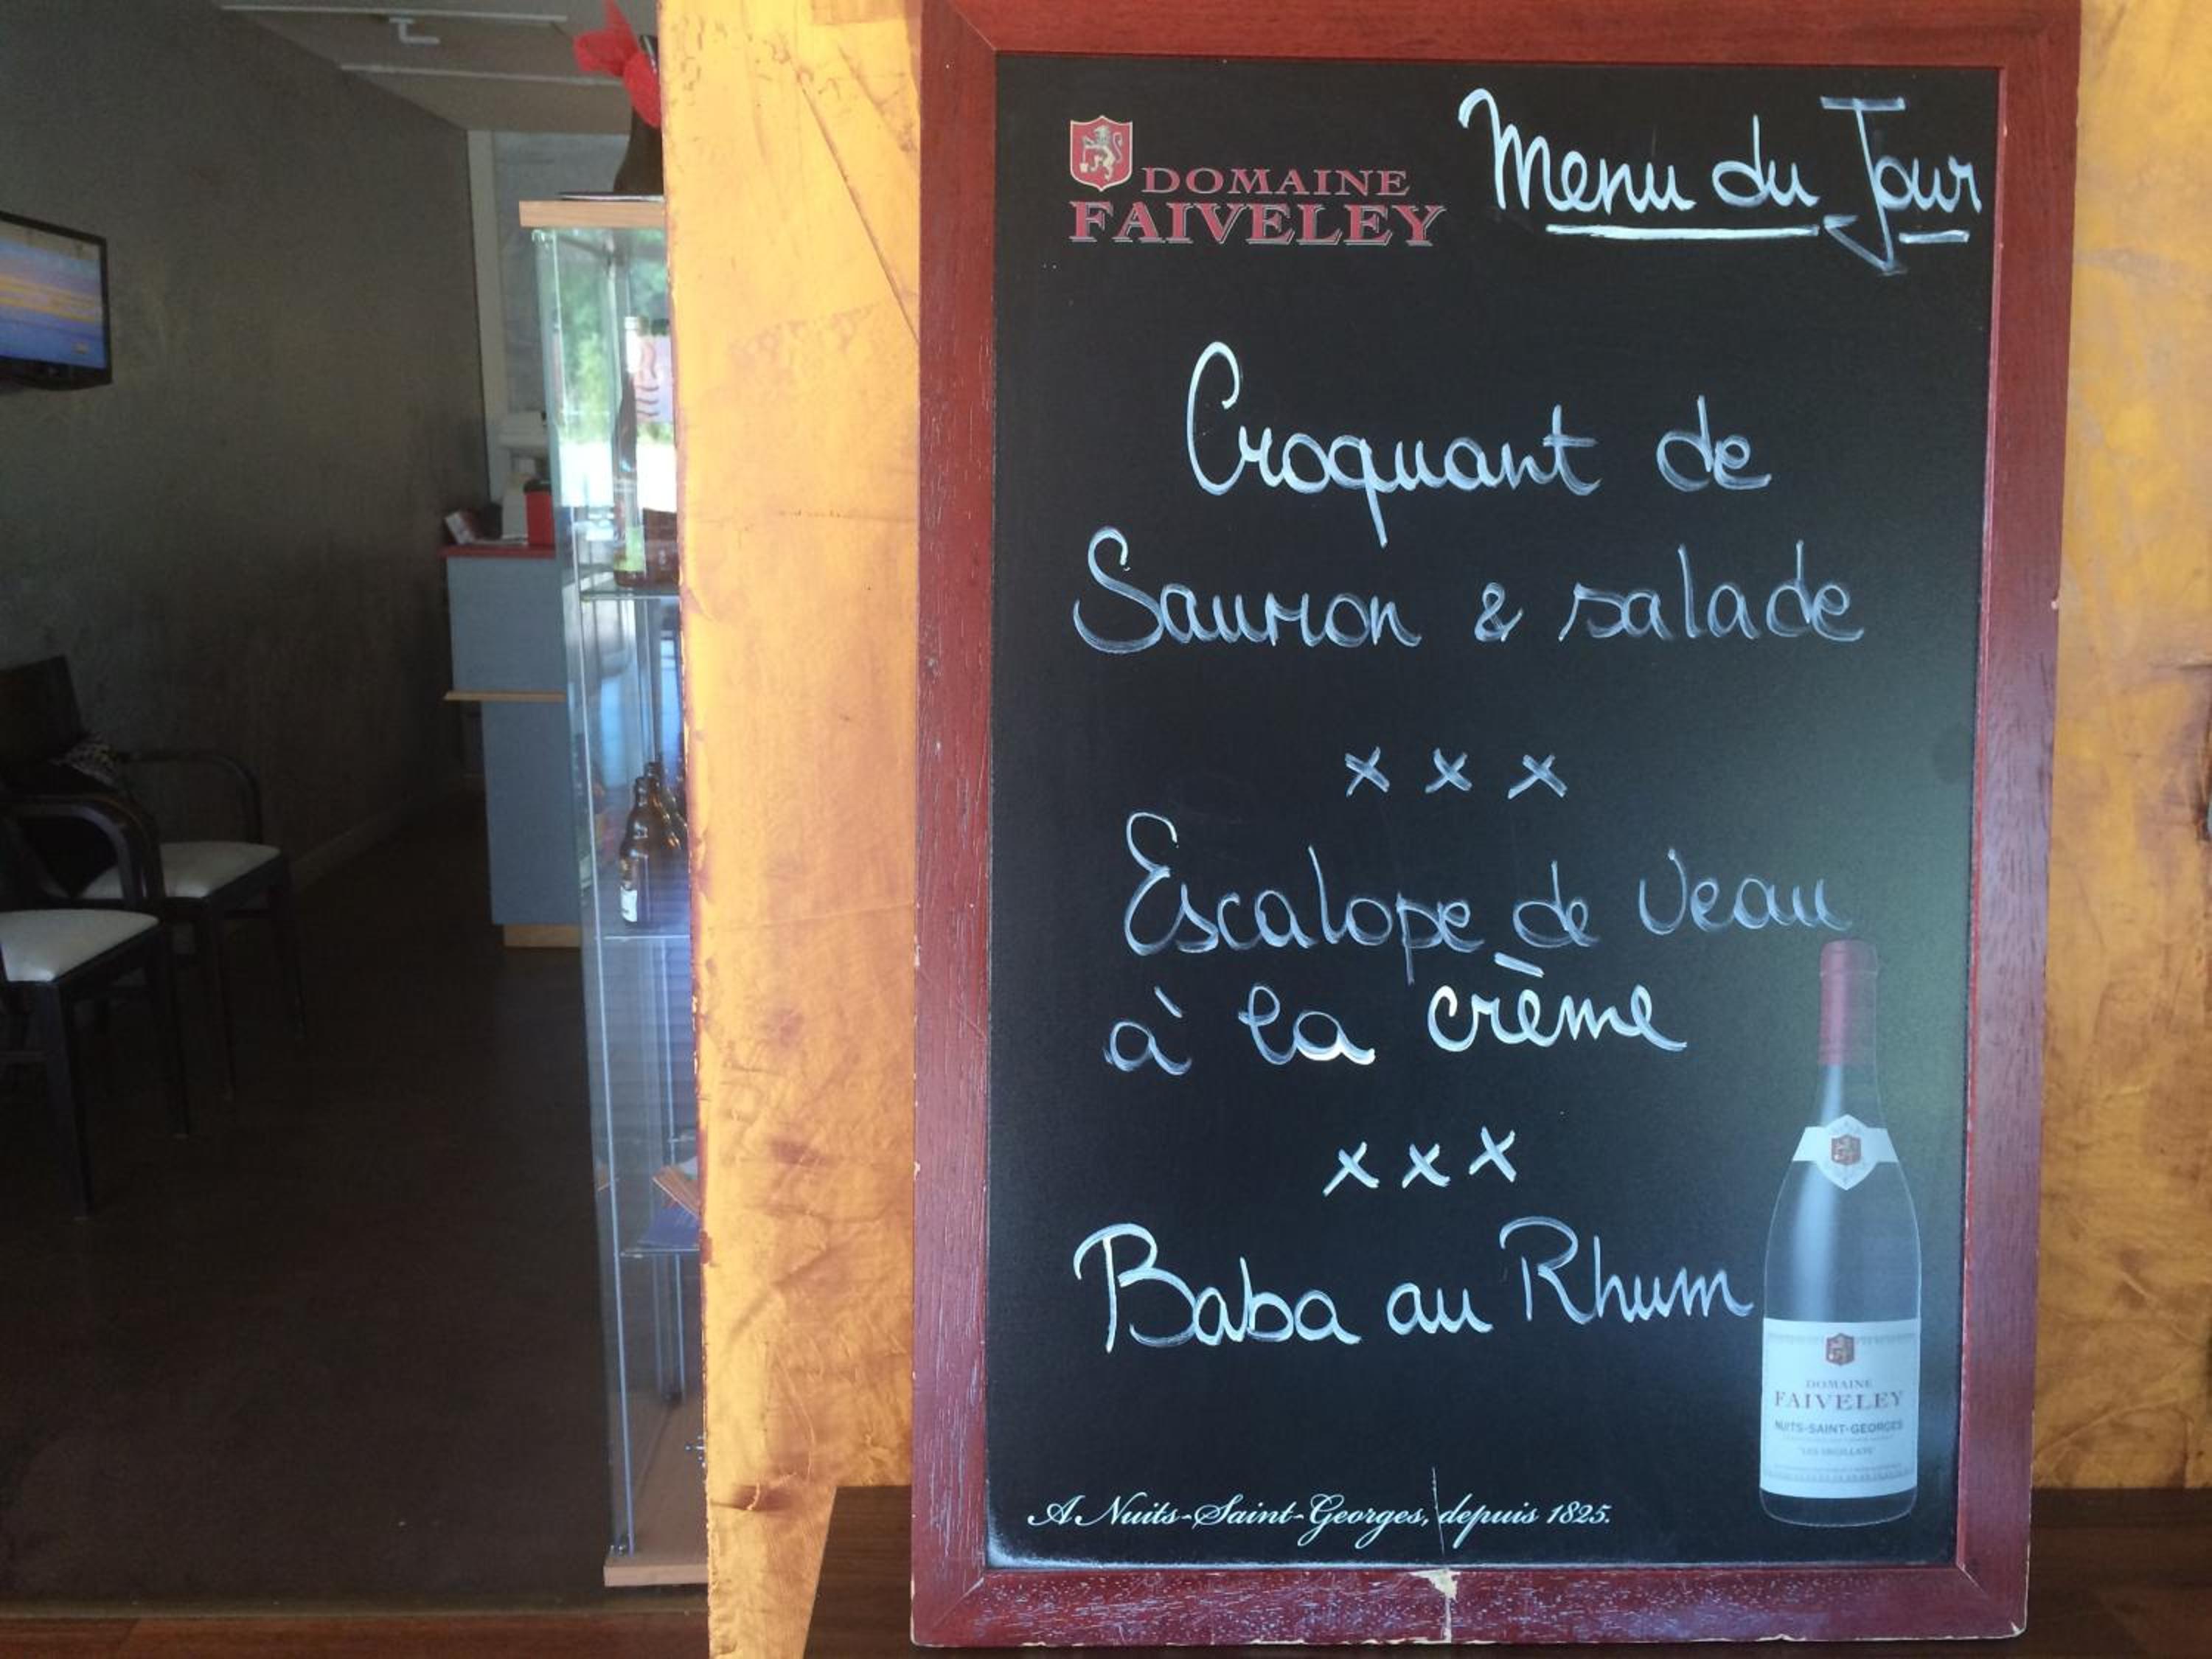 DOMAINE
FAIVELEY
Menu du Jour
Croquant de
Saumon & salade
x x x
Escalope de Veau
à la crème
x x x
Baba au Rhum
DOMAINE
FAIVELEY
NUITS-SAINT-GEORGES
A Nuits-Saint-Georges, depuis 1825.